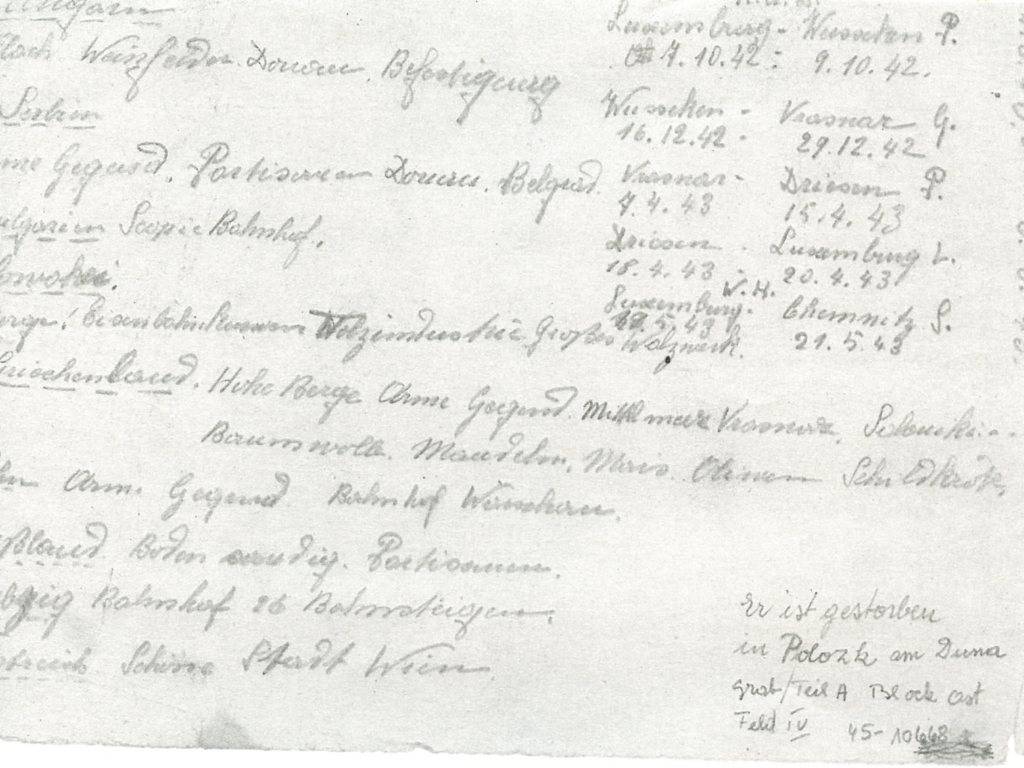 Ungarn
Flach Weizfelder Donau. Befestigung
Serbien
Arme Gegend. Partisanen Donau. Belgrad.
Bulgarien Scopie Bahnhof.
Slowakei.
Berge! Eisenbahn Holzindustrie Großes Walzwerk.
Griechenland. Hohe Berge Arme Gegend. Mittlmeer Saloniki
Baumwolle. Mandeln. Mais. Oliven Schildkröte
Arme Gegend Bahnhof Warschau.
Rußland. Boden sandig. Partisanen.
Leipzig Bahnhof 26 Bahnsteigen.
Schöne Stadt Wien
Luxemburg - Wusseken P.
7.10.42 - 9.10.42.
Wusseken - Vrasnar G.
16.12.42 - 29.12.42
Vrasnar - Driesen P.
7.4.43 15.4.43
Driesen - Luxemburg L.
18.4.43 - 20.4.43
W.H.
Luxemburg - Chemnitz S.
19.5.43 21.5.43
Er ist gestorben
in Polozk am Duna
Grab/Teil A Block Ost
Feld IV 45-10668